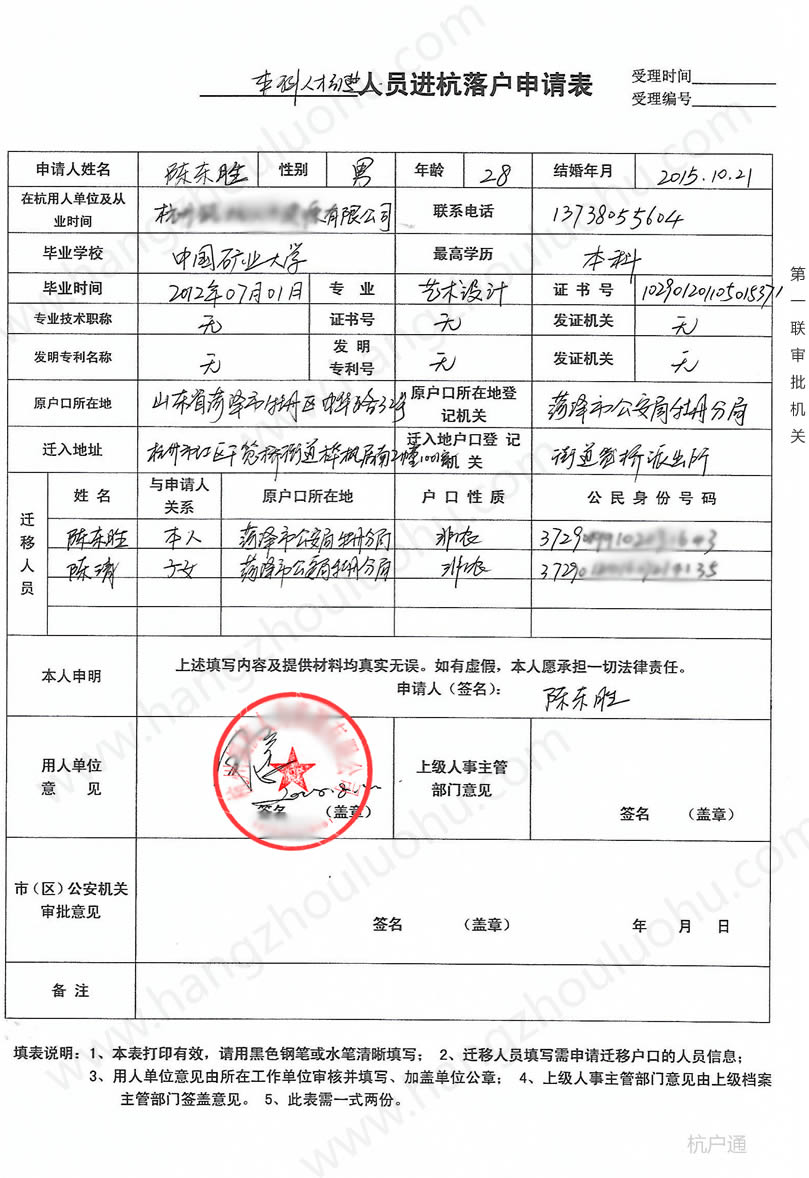 本科人才引进人员进杭落户申请表
受理时间
受理编号
申请人姓名 陈东胜 性别 男 年龄 28 结婚年月 2015.10.21
在杭用人单位及从业时间 杭州 有限公司 联系电话 13738055604
毕业学校 中国矿业大学 最高学历 本科
毕业时间 2012年07月01日 专业 艺术设计 证书号 102901201105015371
专业技术职称 无 证书号 无 发证机关 无
发明专利名称 无 发明专利号 无 发证机关 无
原户口所在地 山东省菏泽市牡丹区中华路32号 原户口所在地登记机关 菏泽市公安局牡丹分局
迁入地址 杭州市江干区笕桥街道 迁入地户口登记机关 笕桥派出所
迁移人员
姓名 与申请人关系 原户口所在地 户口性质 公民身份号码
陈东胜 本人 菏泽市公安局牡丹分局 非农 3729
陈 子女 菏泽市公安局牡丹分局 非农 3729
本人申明 上述填写内容及提供材料均真实无误。如有虚假，本人愿承担一切法律责任。
申请人（签名）： 陈东胜
用人单位意见 签名 （盖章） 上级人事主管部门意见 签名 （盖章）
市（区）公安机关审批意见 签名 （盖章） 年 月 日
备注
第一联审批机关
填表说明：1、本表打印有效，请用黑色钢笔或水笔清晰填写； 2、迁移人员填写需申请迁移户口的人员信息；
3、用人单位意见由所在工作单位审核并填写、加盖单位公章； 4、上级人事主管部门意见由上级档案
主管部门签盖意见。 5、此表需一式两份。
杭户通
www.hangzhouluohu.com